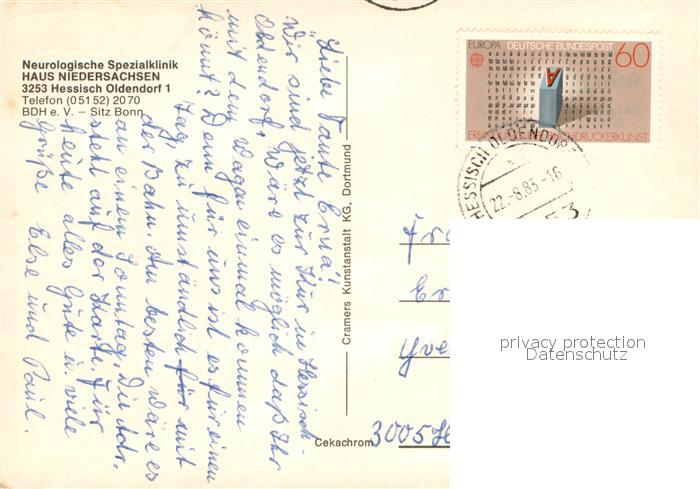 Neurologische Spezialklinik
HAUS NIEDERSACHSEN
3253 Hessisch Oldendorf 1
Telefon (05152) 2070
BDH e. V. – Sitz Bonn
Liebe Tante Erna!
Wir sind jetzt zur Kur in Hessisch-
Oldendorf. Wäre es möglich daß Ihr
mit dem Wagen einmal kommen
könnt? Denn für uns ist es für einen
Tag zu umständlich für mit
der Bahn. Am besten wäre es
an einem Sonntag. Die Adr.
steht auf der Karte. Für
heute alles Gute u. viele
Grüße Else und Paul.
Cramers Kunstanstalt KG, Dortmund
Cekachrom
EUROPA DEUTSCHE BUNDESPOST 60
A
HESSISCH OLDENDORF
22.-8.83.-16
Fr
Er
3005 H
privacy protection
Datenschutz